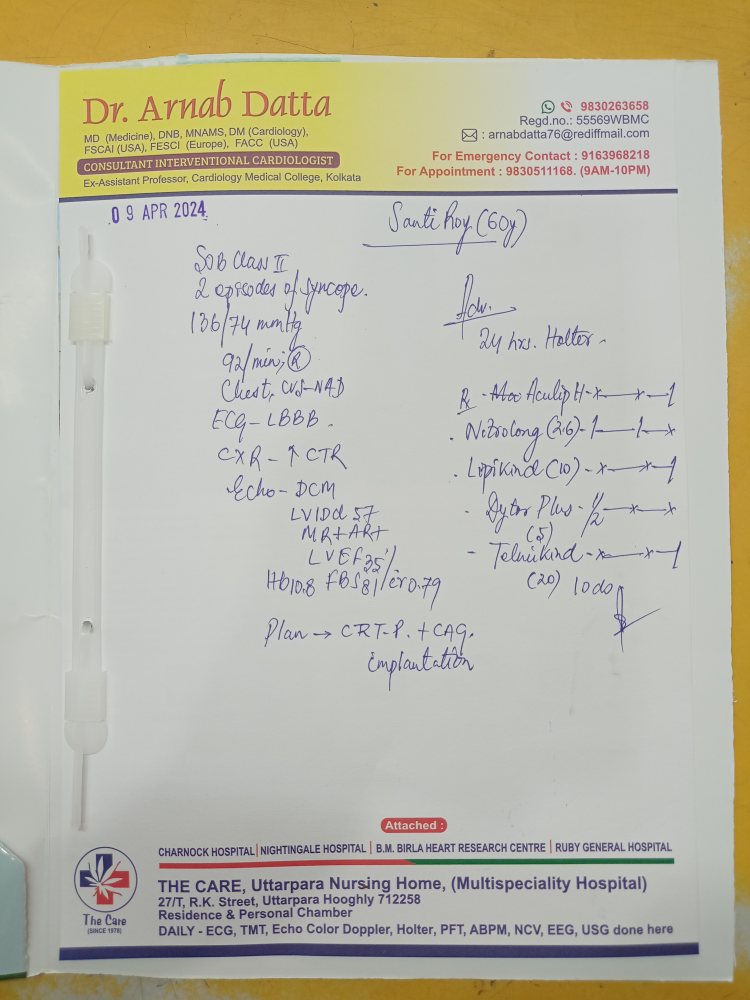 Dr. Arnab Datta
MD (Medicine), DNB, MNAMS, DM (Cardiology),
FSCAI (USA), FESCI (Europe), FACC (USA)
CONSULTANT INTERVENTIONAL CARDIOLOGIST
Ex-Assistant Professor, Cardiology Medical College, Kolkata
9830263658
Regd.no.: 55569WBMC
: arnabdatta76@rediffmail.com
For Emergency Contact : 9163968218
For Appointment : 9830511168. (9AM-10PM)
09 APR 2024
Santi Roy (60y)
SOB Class II
2 episodes of syncope.
136/74 mmHg
92/min; R
Chest, CVS-NAD
ECG - LBBB.
CXR - ↑ CTR
Echo - DCM
LVIDd 57
MR+AR+
LVEF 35%
Hb10.8 FBS81/cr0.79
Plan → CRT-P. + CAG.
implantation
Adv.
24 hrs. Holter
Rx - Aculip H - x — x — 1
. Nitrolong (2.6) - 1 — 1 — x
. Lipikind (10) - x — x — 1
- Dytor Plus - 1/2 — x — x
(5)
- Telmikind - x — x — 1
(20) 10
Attached :
CHARNOCK HOSPITAL | NIGHTINGALE HOSPITAL | B.M. BIRLA HEART RESEARCH CENTRE | RUBY GENERAL HOSPITAL
The Care
(SINCE 1978)
THE CARE, Uttarpara Nursing Home, (Multispeciality Hospital)
27/T, R.K. Street, Uttarpara Hooghly 712258
Residence & Personal Chamber
DAILY - ECG, TMT, Echo Color Doppler, Holter, PFT, ABPM, NCV, EEG, USG done here